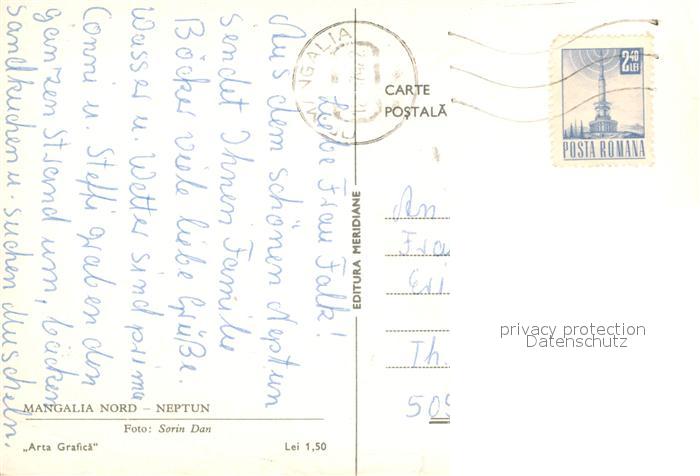 Liebe Frau Falk!
Aus dem schönen Neptun
sendet Ihnen Familie
Böcker viele liebe Grüße.
Wasser u. Wetter sind prima
Conni u. Steffi graben den
ganzen Strand um, backen
Sandkuchen u. suchen Muscheln.
MANGALIA NORD – NEPTUN
Foto: Sorin Dan
„Arta Grafică"
Lei 1,50
EDITURA MERIDIANE
MANGALIA
CARTE
POŞTALĂ
2,40
LEI
POSTA ROMANA
An
Fra
Eri
Th.
50
privacy protection
Datenschutz